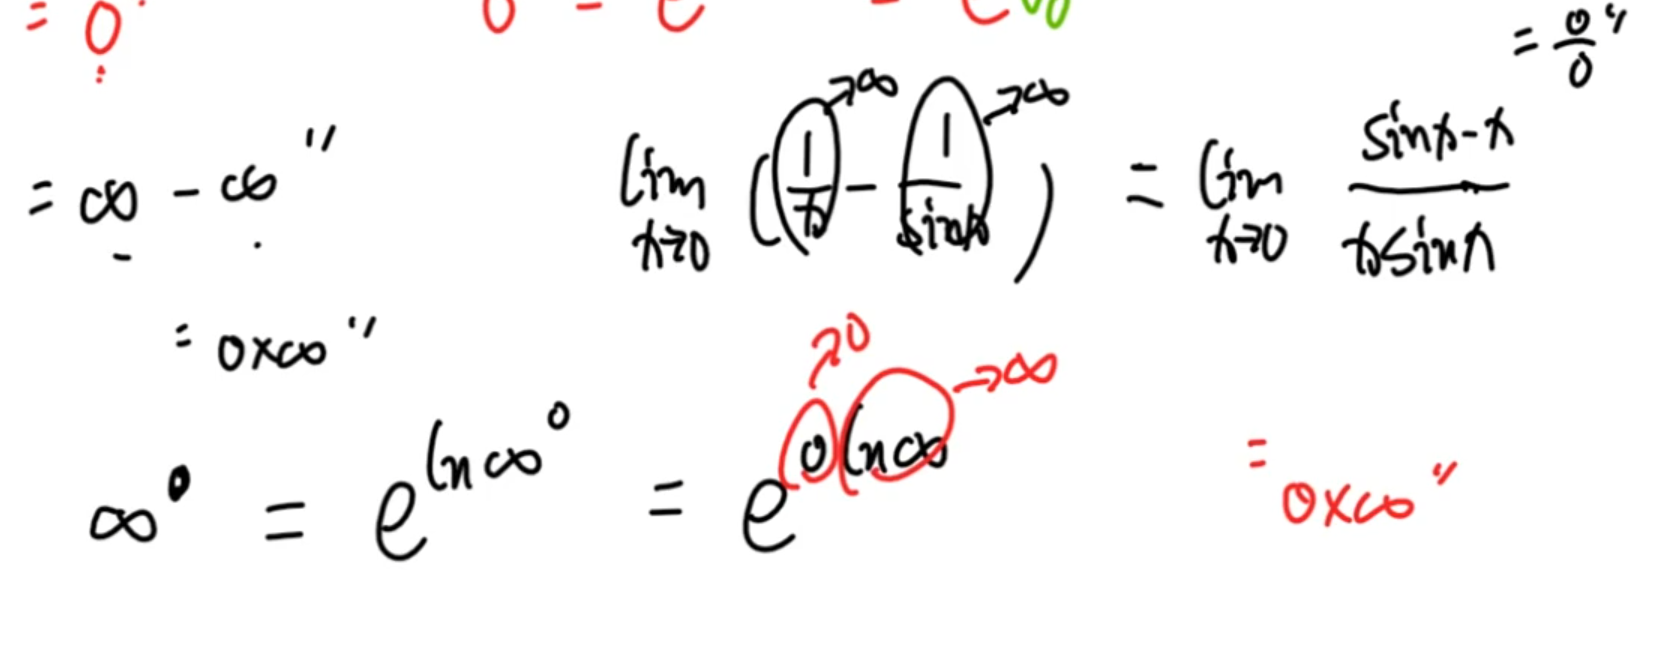 = 0
0 = e = e
= 0/0 "
= ∞ - ∞ "
lim x→0 ( 1/x →∞ - 1/sinx →∞ ) = lim x→0 (sinx-x)/(xsinx)
= 0×∞ "
→0 →∞
∞^0 = e^(ln∞^0) = e^(0 ln∞) = 0×∞ "